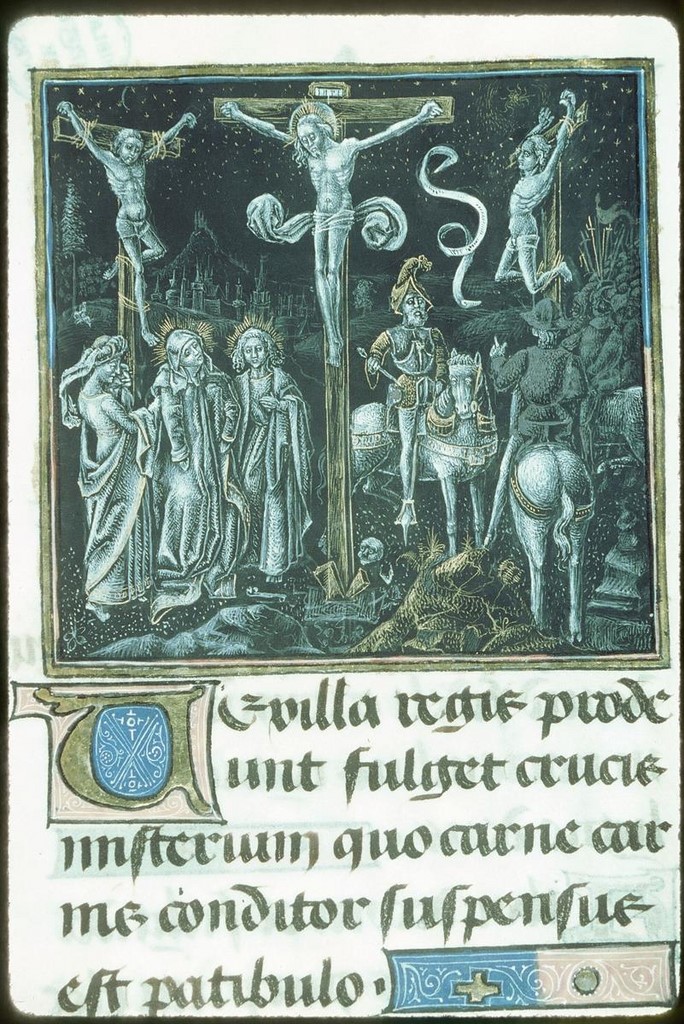 Vexilla regis prode
unt fulget crucis
misterium quo carne car
nis conditor suspensus
est patibulo.